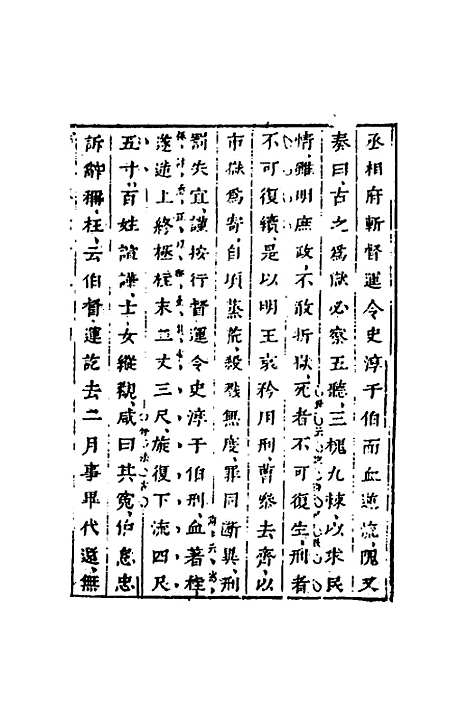 丞相府斬督運令史淳于伯而血逆流隗又
奏曰古之為獄必察五聽三槐九棘以求民
情雖明庶政不敢折獄死者不可復生刑者
不可復續是以明王哀矜用刑曹參去齊以
市獄為寄自頃蒸荒殺戮無度罪同斷異刑
罰失宜謹按行督運令史淳于伯刑血著柱
遂逆上終極柱末二丈三尺旋復下流四尺
五寸百姓諠譁士女縱觀咸曰其冤伯息忠
訴辭稱枉云伯督運訖去二月事畢代還無